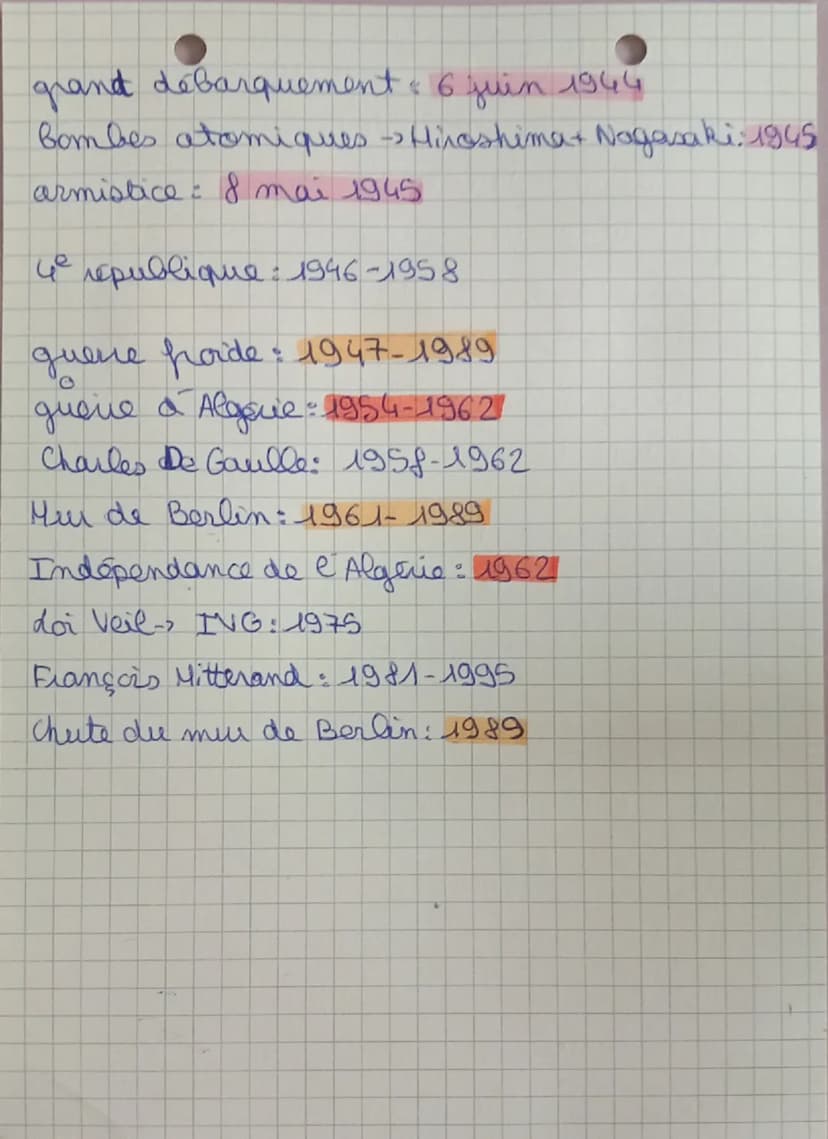 grand débarquement : 6 juin 1944
Bombes atomiques -> Hiroshima + Nagasaki : 1945
armistice : 8 mai 1945
4e republique : 1946-1958
guerre froide : 1947-1989
guerre d'Algérie : 1954-1962
Charles De Gaulle : 1958-1962
Mur de Berlin : 1961-1989
Indépendance de l'Algérie : 1962
Loi Veil -> IVG : 1975
François Mitterand : 1981-1995
Chute du mur de Berlin : 1989